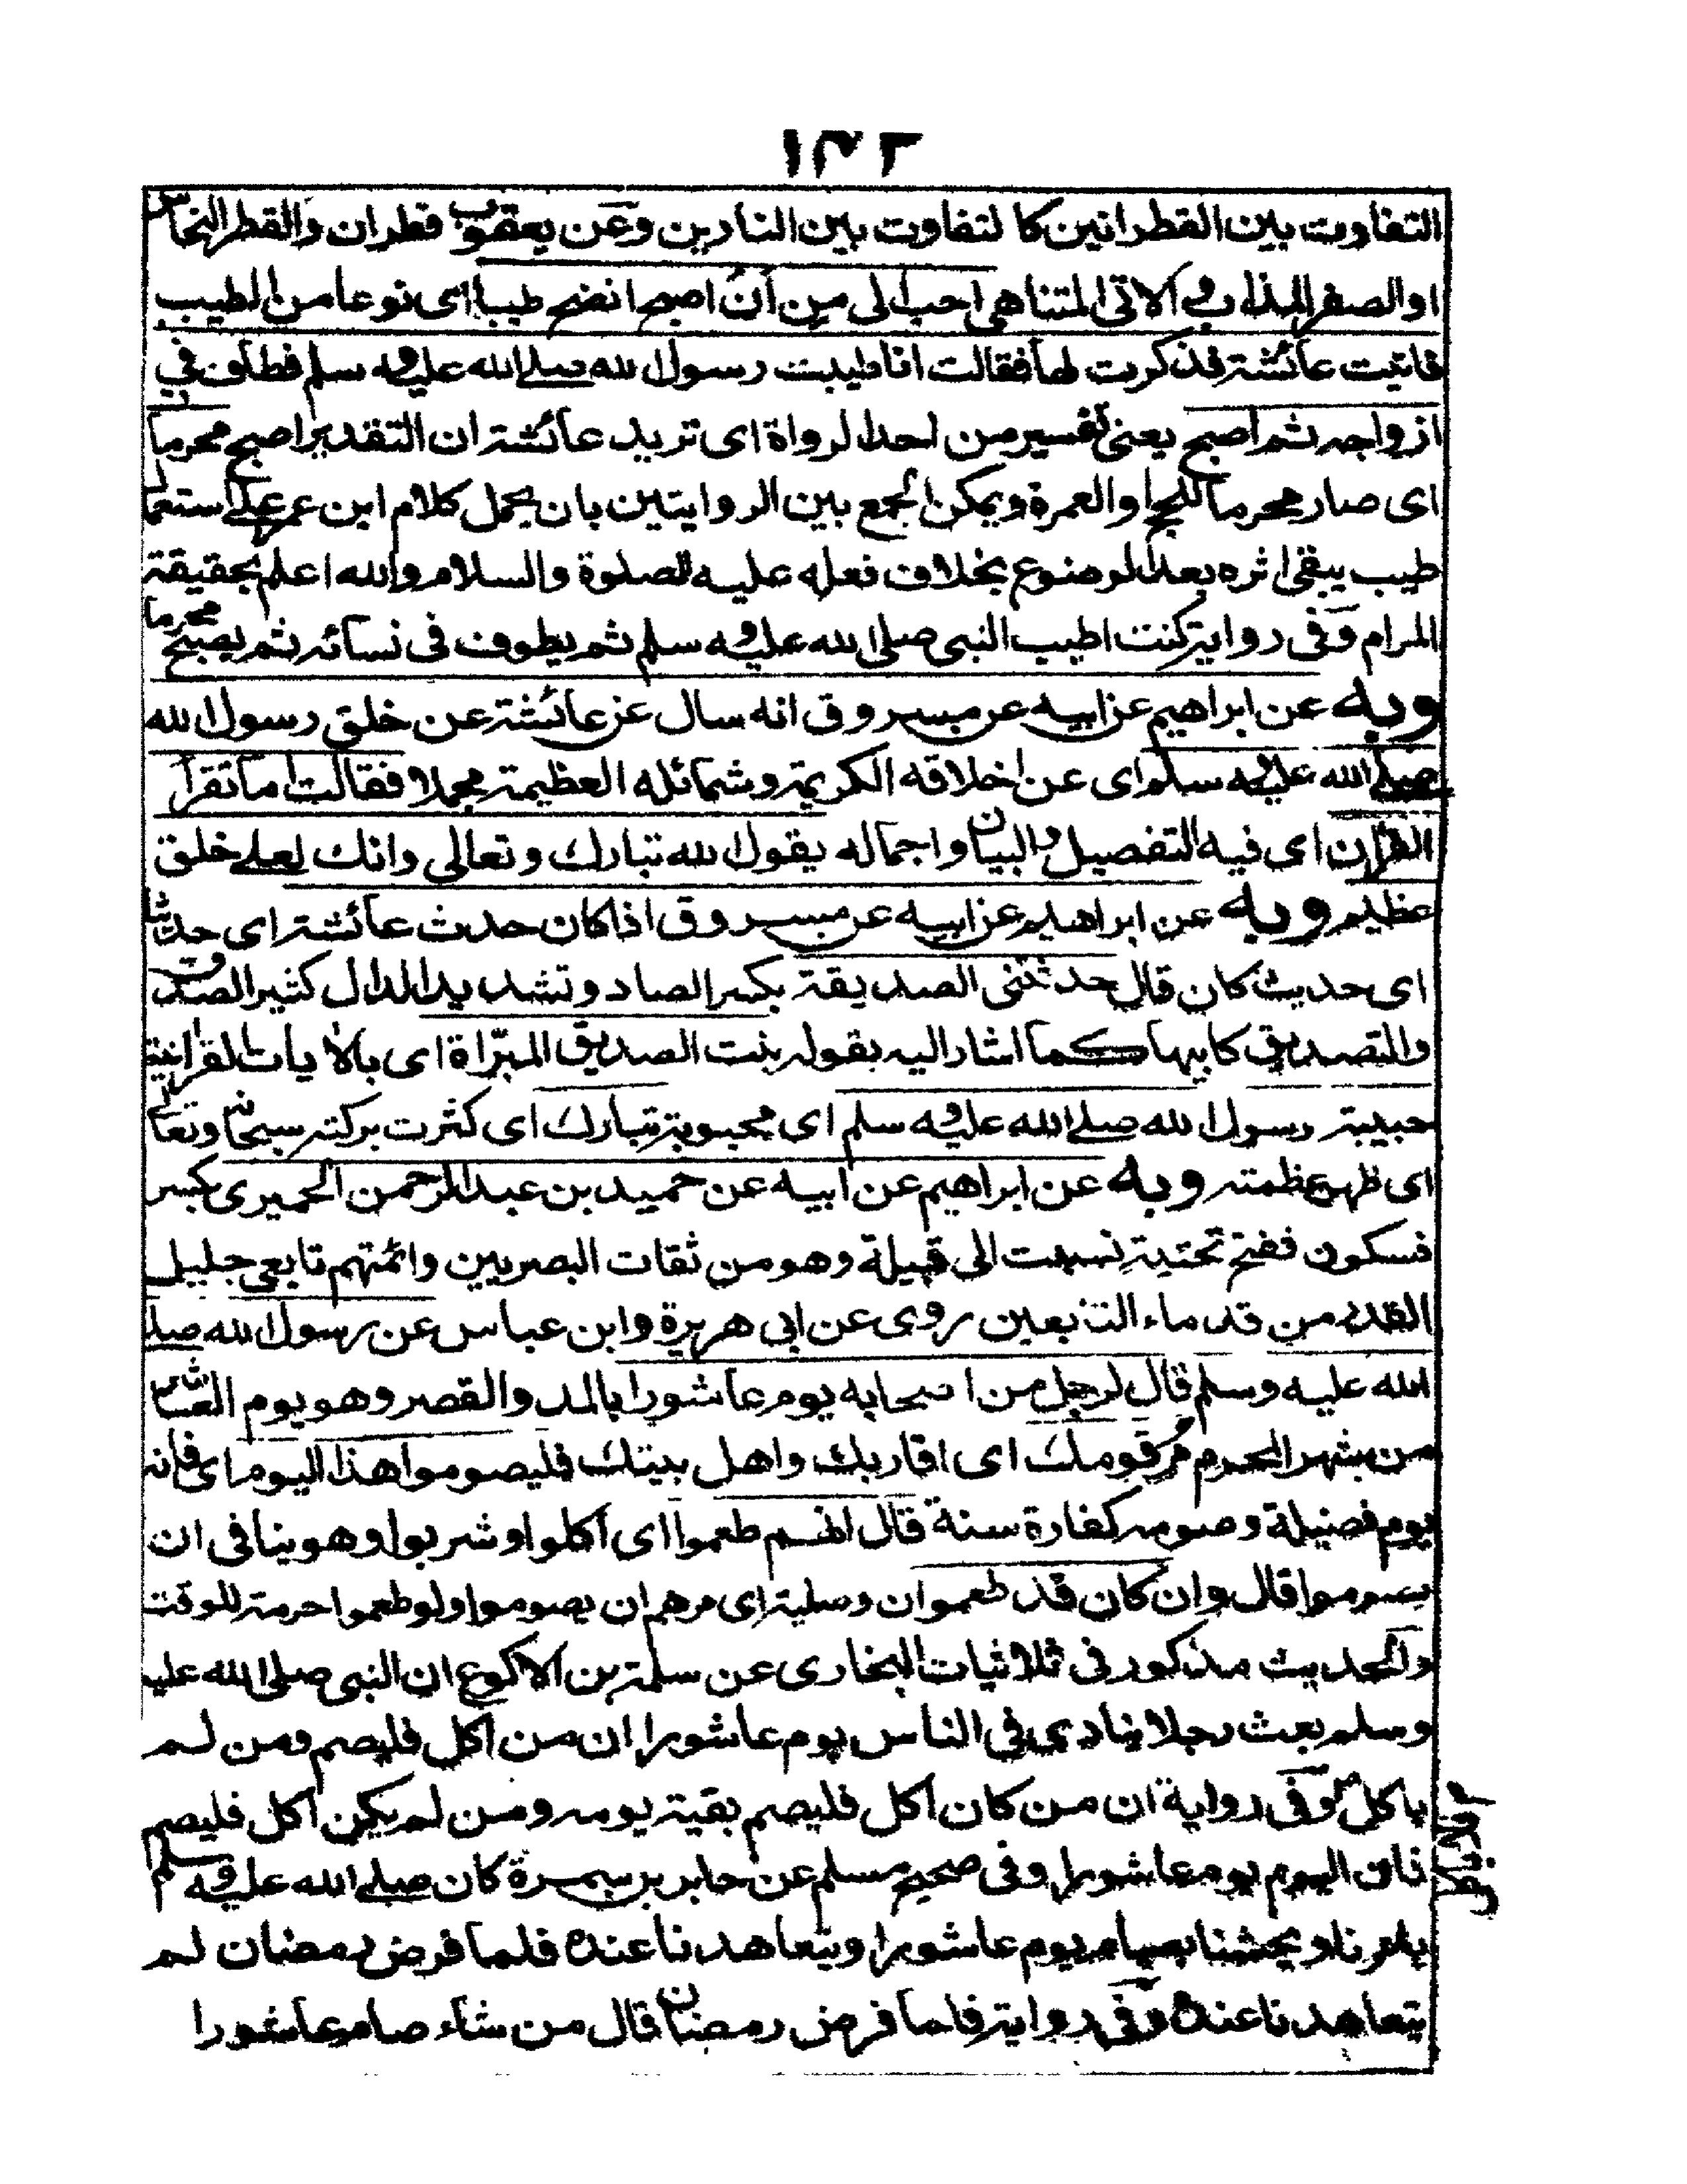 ١٣٦
التفاوت بين القطرانين كا لتفاوت بين النارين وعن يعقوب قطران والقطر النحاس
او الصفر المذاب والاتى المتناهى احب الى من ان اصبح انضح طيبا اى نوعا من الطيب
فاتيت عائشة فذكرت لها فقالت انا طيبت رسول الله صلى الله عليه وسلم فطاف في
ازواجه ثم اصبح يعنى تفسير من احد الرواة اى تريد عائشة ان التقدير اصبح محرما
اى صار محرما للحج او العمرة ويمكن الجمع بين الروايتين بان يحمل كلام ابن عمر على استعمال
طيب يبقى اثره بعد الوضوع بخلاف فعله عليه الصلوة والسلام والله اعلم بحقيقة
المرام وفى رواية كنت اطيب النبى صلى الله عليه وسلم ثم يطوف فى نسائه ثم يصبح محرما
وبه عن ابراهيم عن ابيه عن مسروق انه سال عن عائشة عن خلق رسول الله
صلى الله عليه وسلم اى عن اخلاقه الكريمة وشمائله العظيمة مجملا فقالت اما تقرأ
القران اى فيه التفصيل والبيان واجماله يقول الله تبارك وتعالى وانك لعلى خلق
عظيم وبه عن ابراهيم عن ابيه عن مسروق اذا كان حدث عائشة اى حديثا
اى حديث كان قال حدثتنى الصديقة بكسر الصاد وتشديد الدال كثير الصدق
والتصديق كابيها كما اشار اليه بقوله بنت الصديق المبرّاة اى بالايات القرانية
حبيبة رسول الله صلى الله عليه وسلم اى محبوبة تبارك اى كثرت بركته سبحانه وتعالى
اى ظهر عظمته وبه عن ابراهيم عن ابيه عن حميد بن عبد الرحمن الحميرى بكسر
فسكون ففتح تحتية نسبت الى قبيلة وهو من ثقات البصريين وائمتهم تابعي جليل
القدر من قدماء التابعين روى عن ابى هريرة وابن عباس عن رسول الله صلى
الله عليه وسلم قال لرجل من اصحابه يوم عاشورا بالمد والقصر وهو يوم العاشر
من شهر المحرم مُر قومك اى اقاربك واهل بيتك فليصوموا هذا اليوم اى فانه
يوم فضيلة وصومه كفارة سنة قال انهم طعموا اى اكلوا وشربوا وهو ينافى ان
يصوموا قال وان كان قد طعموا ان وصلية اى مرهم ان يصوموا ولو طعموا حرمة للوقت
والحديث مذكور فى ثلاثيات البخارى عن سلمة بن الاكوع ان النبى صلى الله عليه
وسلم بعث رجلا ينادى في الناس يوم عاشورا ان من اكل فليصم ومن لم
ياكل وفى رواية ان من كان اكل فليصم بقية يومه ومن لم يكن اكل فليصم
فان اليوم يوم عاشورا وفى صحيح مسلم عن جابر بن سمرة كان صلى الله عليه وسلم
يامرنا ويحثنا بصيام يوم عاشورا ويتعاهدنا عنده فلما فرض رمضان لم
يتعاهدنا عنده وفى رواية فلما فرض رمضان قال من شاء صام عاشورا